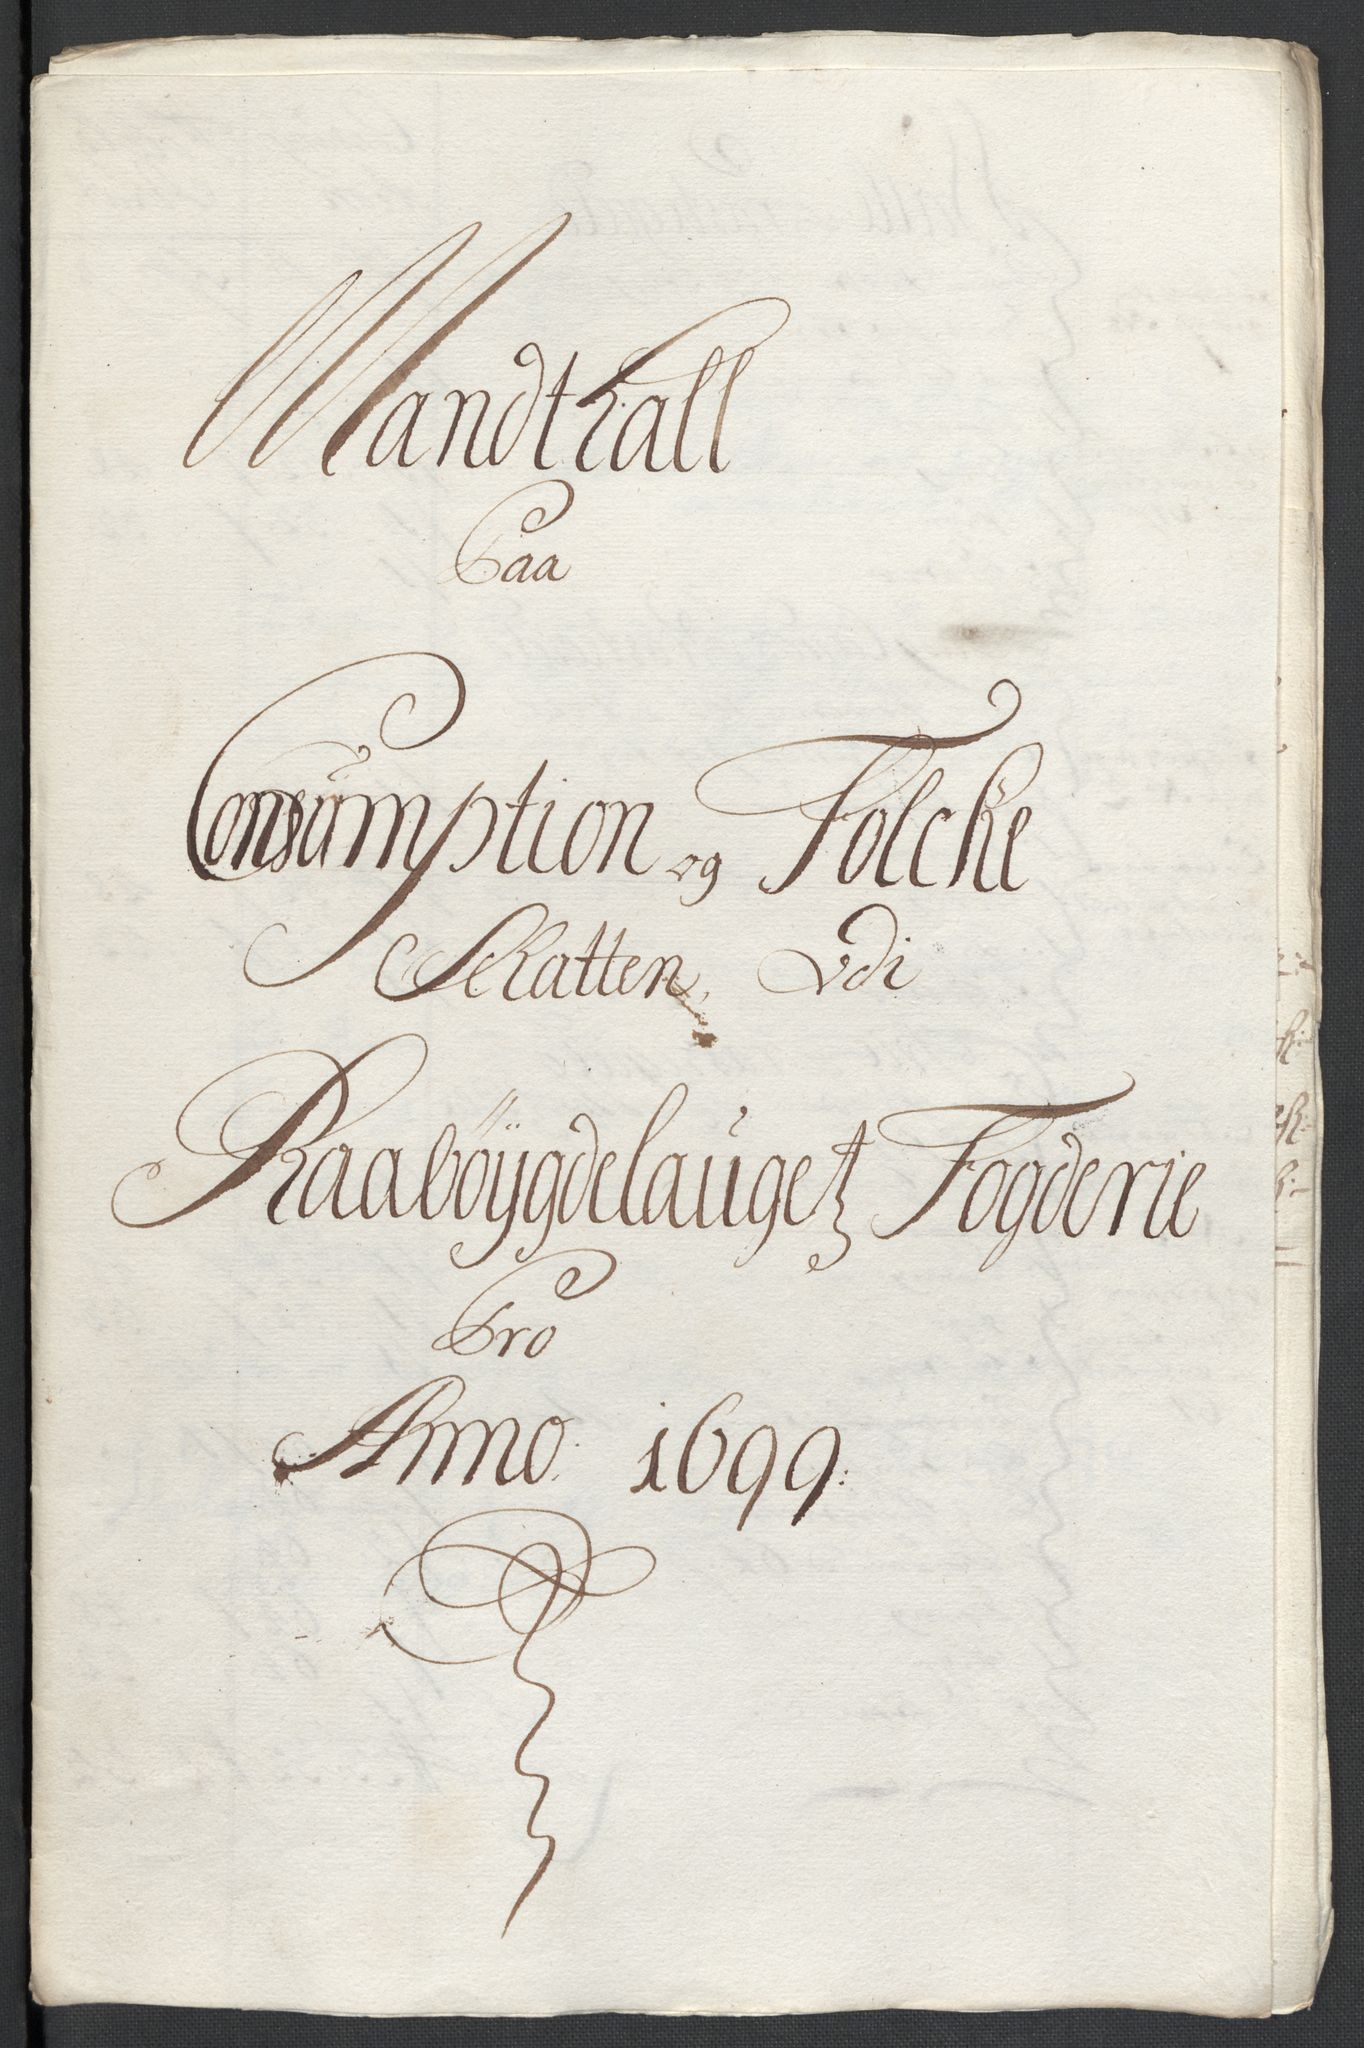 Mandtall
Paa
Consumption og Folcke
Skatten, Vdi
Raabøygdelaugetz Fogderie
Pro
Anno. 1699.